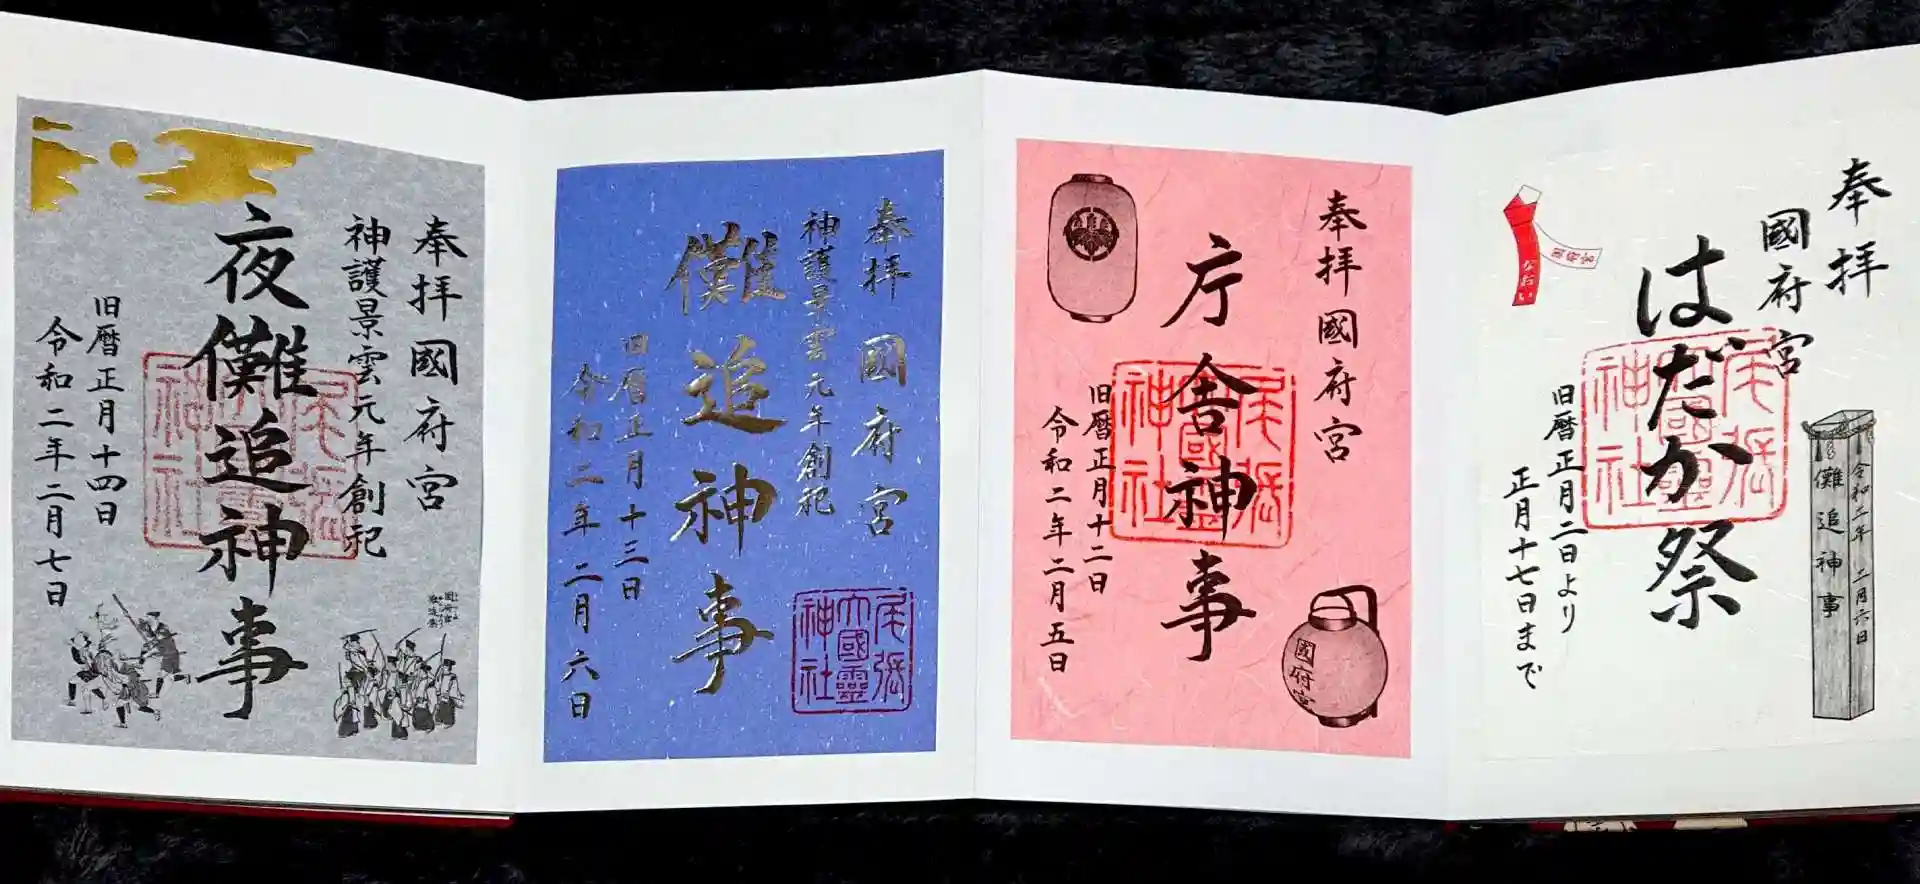 奉拝
國府宮
はだか祭
旧暦正月二日より
正月十七日まで
令和二年 二月六日
儺追神事
なおい
尾張
大國霊
神社
奉拝 國府宮
庁舎神事
旧暦正月十二日
令和二年二月五日
國府宮
尾張
大國霊
神社
奉拝 國府宮
神護景雲元年創祀
儺追神事
旧暦正月十三日
令和二年 二月六日
尾張
大國霊
神社
奉拝 國府宮
神護景雲元年創祀
夜儺追神事
旧暦正月十四日
令和二年二月七日
尾張
大國霊
神社